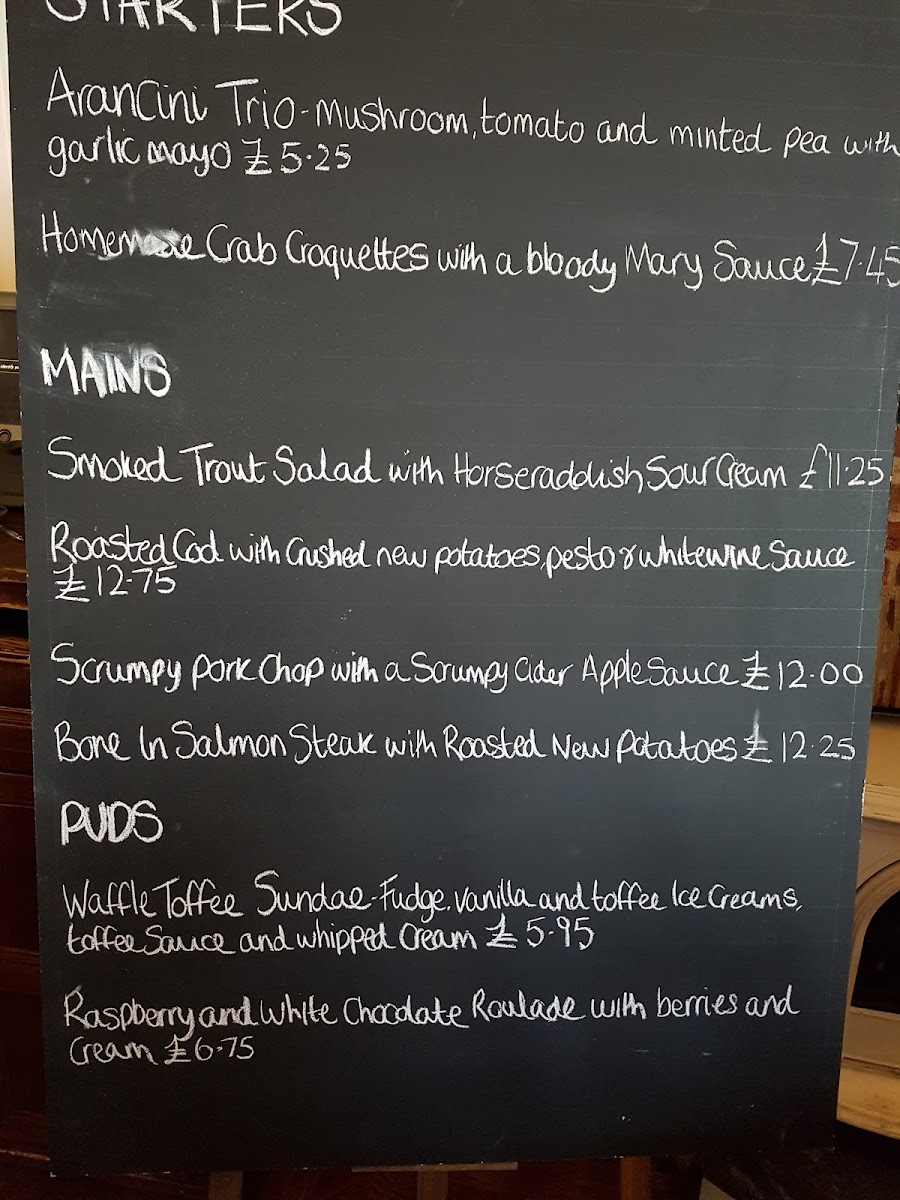 STARTERS
Arancini Trio-mushroom, tomato and minted pea with
garlic mayo £5.25
Homemade Crab Croquettes with a bloody Mary Sauce £7.45
MAINS
Smoked Trout Salad with Horseraddish Sour Cream £11.25
Roasted Cod with Crushed new potatoes, pesto & white wine Sauce
£12.75
Scrumpy pork Chop with a Scrumpy Cider Apple Sauce £12.00
Bone In Salmon Steak with Roasted New Potatoes £12.25
PUDS
Waffle Toffee Sundae-Fudge, vanilla and toffee Ice Creams,
toffee Sauce and whipped Cream £5.95
Raspberry and White Chocolate Roulade with berries and
Cream £6.75